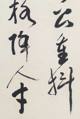 公重抖
格降人才